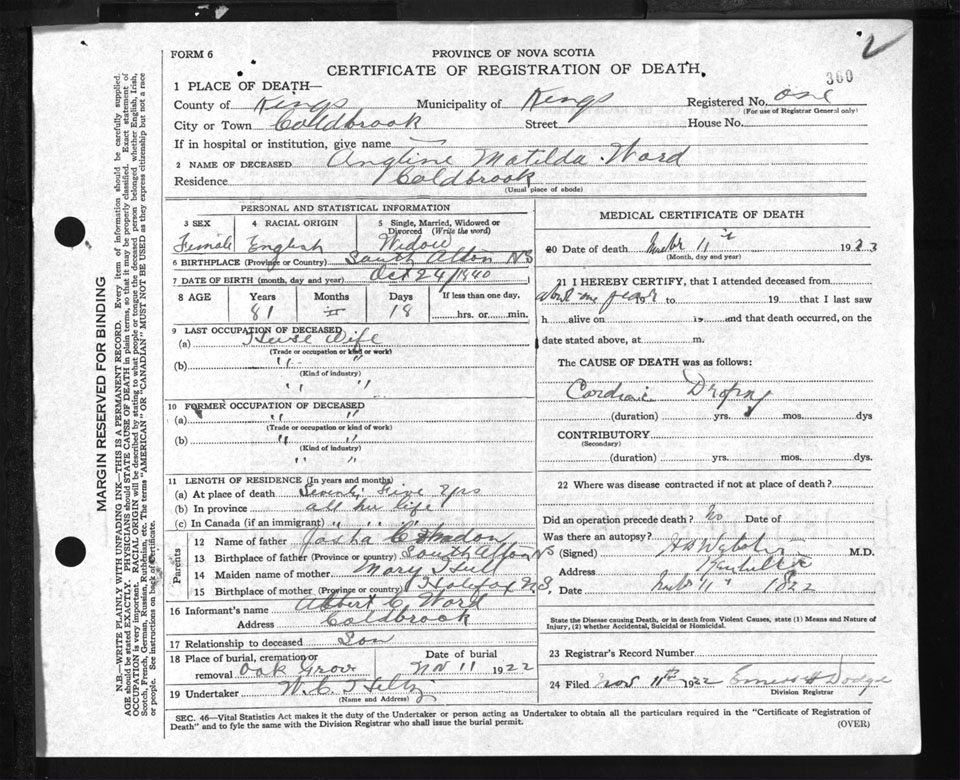 2
FORM 6
PROVINCE OF NOVA SCOTIA
CERTIFICATE OF REGISTRATION OF DEATH.
360
1 PLACE OF DEATH—
County of Kings Municipality of Kings Registered No. one
(For use of Registrar General only)
City or Town Coldbrook Street House No.
If in hospital or institution, give name
2 NAME OF DECEASED Angline Matilda Ward
Residence Coldbrook
(Usual place of abode)
PERSONAL AND STATISTICAL INFORMATION
3 SEX 4 RACIAL ORIGIN 5 Single, Married, Widowed or Divorced (Write the word)
Female English Widow
6 BIRTHPLACE (Province or Country) South Alton NS
7 DATE OF BIRTH (month, day and year) Oct 24/1940
8 AGE Years Months Days If less than one day.
81 II 18 hrs. or min.
9 LAST OCCUPATION OF DECEASED
(a) House Wife
(Trade or occupation or kind or work)
(b) " "
(Kind of industry)
" "
10 FORMER OCCUPATION OF DECEASED
(a) " "
(Trade or occupation or kind of work)
(b) " "
(Kind of industry)
" "
11 LENGTH OF RESIDENCE (In years and months)
(a) At place of death Seventy Five Yrs
(b) In province all her life
(c) In Canada (if an immigrant) " " "
Parents
12 Name of father
13 Birthplace of father (Province or country) South Alton NS
14 Maiden name of mother Mary Hull
15 Birthplace of mother (Province or country) Halifax N.S.
16 Informant's name Albert C. Ward
Address Coldbrook
17 Relationship to deceased Son
18 Place of burial, cremation or removal Oak Grove Date of burial Nov 11 1922
19 Undertaker W. C.
(Name and Address)
MEDICAL CERTIFICATE OF DEATH
20 Date of death 11 1923
(Month, day and year)
21 I HEREBY CERTIFY, that I attended deceased from
about one year to 19 that I last saw
h alive on is and that death occurred, on the
date stated above, at m.
The CAUSE OF DEATH was as follows:
Cardiac Dropsy
(duration) yrs. mos. dys
CONTRIBUTORY
(Secondary)
(duration) yrs. mos. dys.
22 Where was disease contracted if not at place of death?
Did an operation precede death? No Date of
Was there an autopsy?
(Signed) Webster M.D.
Address Kentville
Date 11 1822
State the Disease causing Death, or in death from Violent Causes, state (1) Means and Nature of Injury, (2) whether Accidental, Suicidal or Homicidal.
23 Registrar's Record Number
24 Filed Nov 11th 1922 Dodge
Division Registrar
SEC. 46—Vital Statistics Act makes it the duty of the Undertaker or person acting as Undertaker to obtain all the particulars required in the "Certificate of Registration of
Death" and to fyle the same with the Division Registrar who shall issue the burial permit.
(OVER)
MARGIN RESERVED FOR BINDING
N.B.—WRITE PLAINLY WITH UNFADING INK—THIS IS A PERMANENT RECORD. Every item of information should be carefully supplied.
AGE should be stated EXACTLY. PHYSICIANS should STATE CAUSE OF DEATH in plain terms, so that it may be properly classified. Exact statement of
OCCUPATION is very important. RACIAL ORIGIN will be described by stating to what people or tongue the deceased person belonged whether English, Irish,
Scotch, French, German, Russian, Ruthenian, etc. The terms "AMERICAN" OR "CANADIAN" MUST NOT BE USED as they express citizenship but not a race
or people. See instructions on back of certificate.